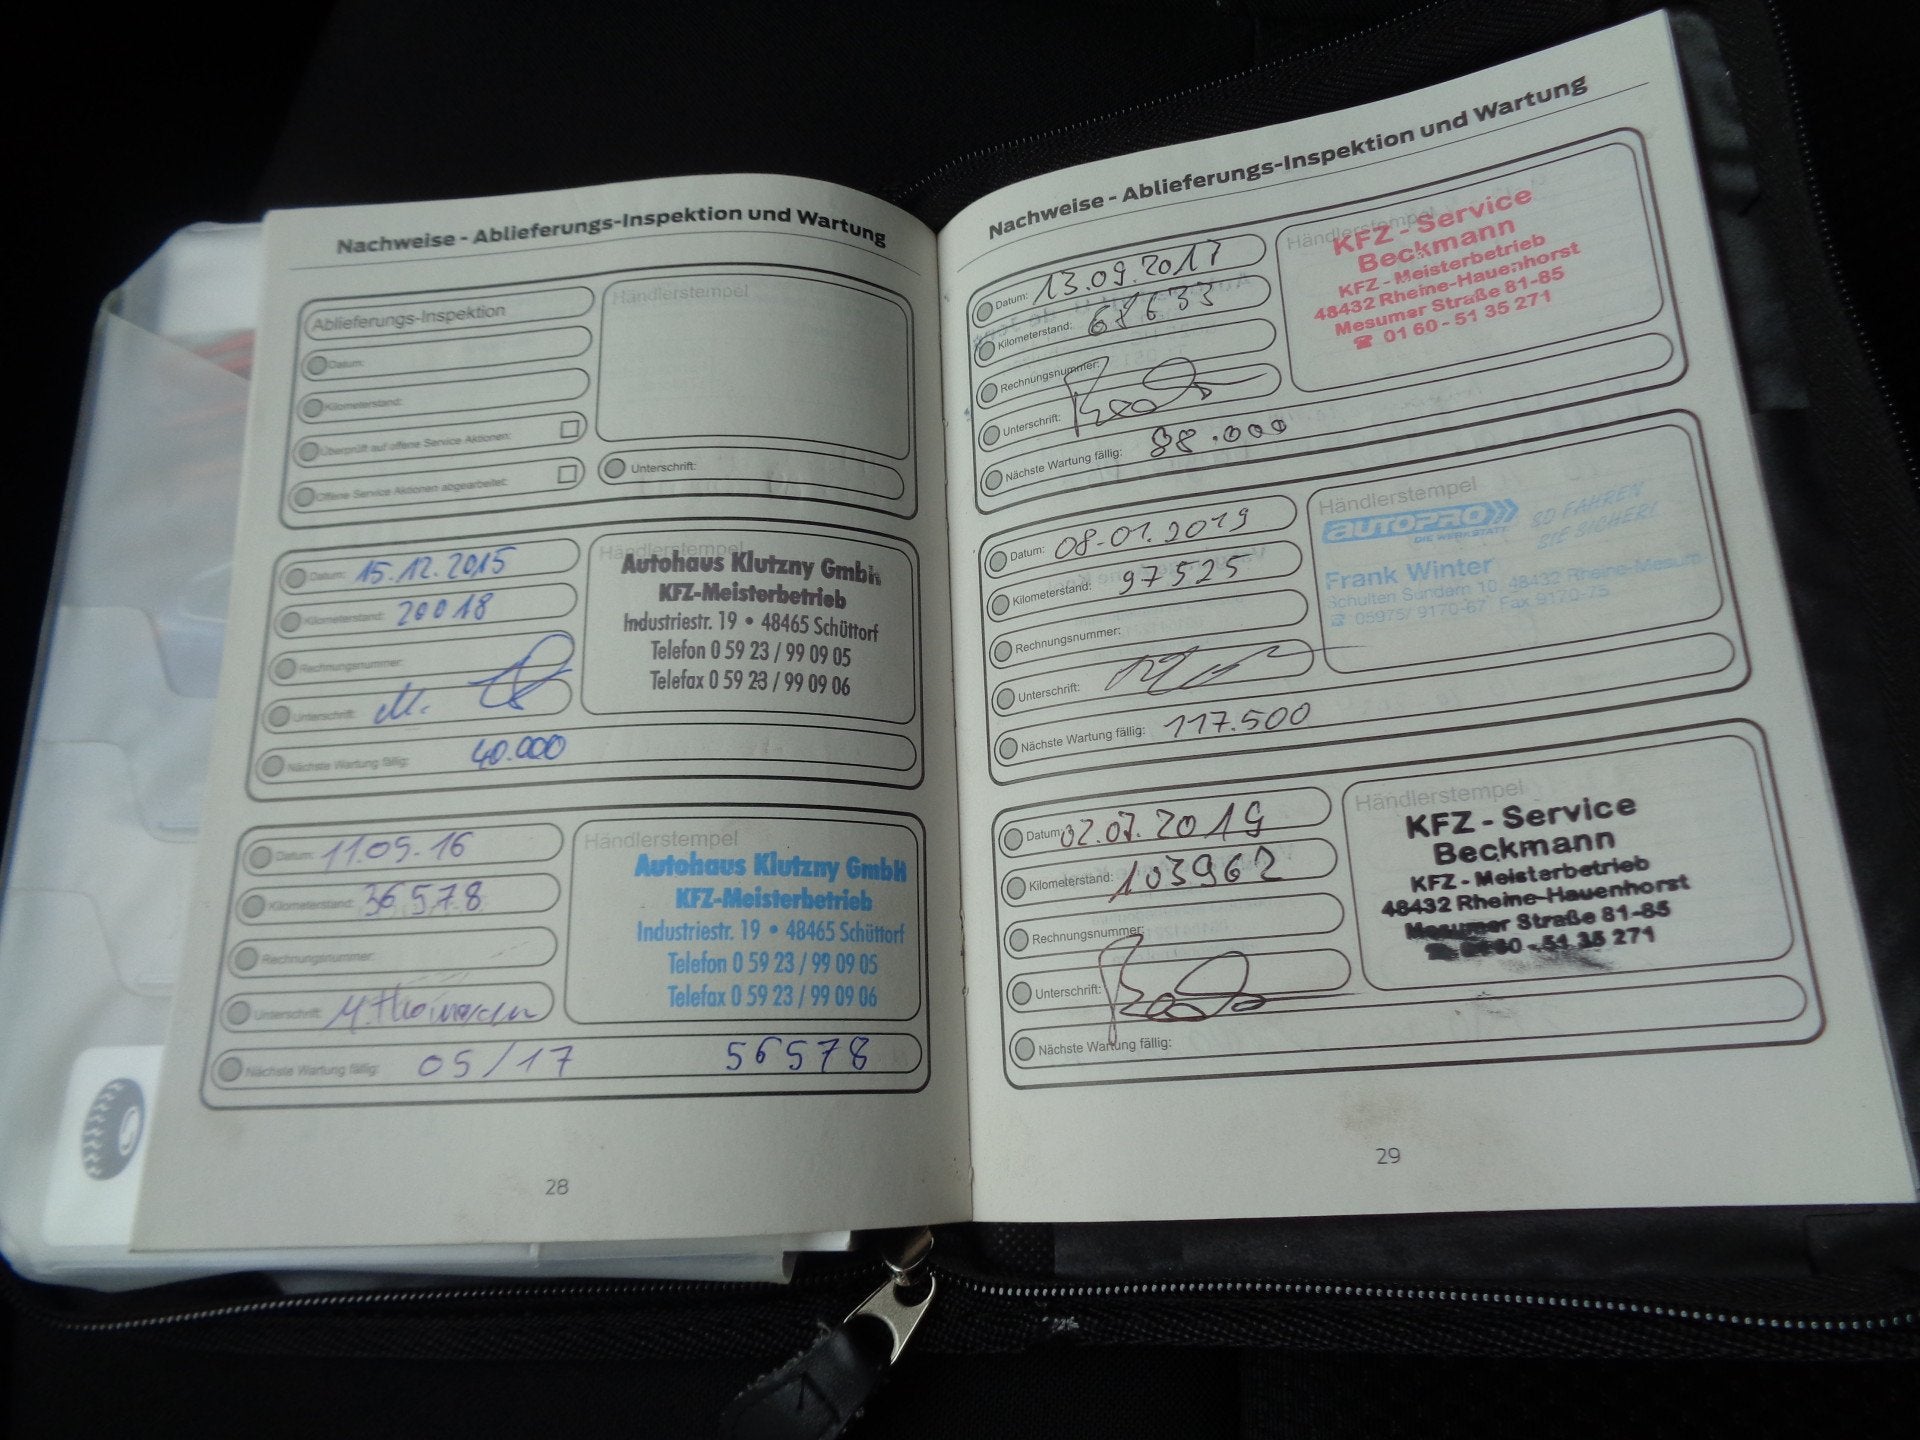 Nachweise - Ablieferungs-Inspektion und Wartung
Ablieferungs-Inspektion
Händlerstempel
Datum:
Kilometerstand:
Überprüft auf offene Service Aktionen:
Offene Service Aktionen abgearbeitet:
Unterschrift:
Händlerstempel
Datum: 15.12.2015
Kilometerstand: 20018
Rechnungsnummer:
Unterschrift:
Autohaus Klutzny GmbH
KFZ-Meisterbetrieb
Industriestr. 19 • 48465 Schüttorf
Telefon 0 59 23 / 99 09 05
Telefax 0 59 23 / 99 09 06
Nächste Wartung fällig: 40.000
Händlerstempel
Datum: 11.05.16
Kilometerstand: 36578
Rechnungsnummer:
Unterschrift:
Autohaus Klutzny GmbH
KFZ-Meisterbetrieb
Industriestr. 19 • 48465 Schüttorf
Telefon 0 59 23 / 99 09 05
Telefax 0 59 23 / 99 09 06
Nächste Wartung fällig: 05/17 56578
28
Nachweise - Ablieferungs-Inspektion und Wartung
Händlerstempel
Datum: 13.09.2017
Kilometerstand:
Rechnungsnummer:
Unterschrift:
KFZ - Service
Beckmann
KFZ - Meisterbetrieb
48432 Rheine-Hauenhorst
Mesumer Straße 81-85
☎ 01 60 - 51 35 271
Nächste Wartung fällig: 88.000
Händlerstempel
Datum: 08.01.2019
Kilometerstand: 97525
Rechnungsnummer:
Unterschrift:
AUTOPRO
DIE WERKSTATT
SO FAHREN
SIE SICHER!
Frank Winter
Schulten Sundern 10, 48432 Rheine-Mesum
☎ 05975/ 9170-67, Fax 9170-75
Nächste Wartung fällig: 117.500
Händlerstempel
Datum: 02.07.2019
Kilometerstand: 103962
Rechnungsnummer:
Unterschrift:
KFZ - Service
Beckmann
KFZ - Meisterbetrieb
48432 Rheine-Hauenhorst
Mesumer Straße 81-85
☎ 01 60 - 51 35 271
Nächste Wartung fällig:
29